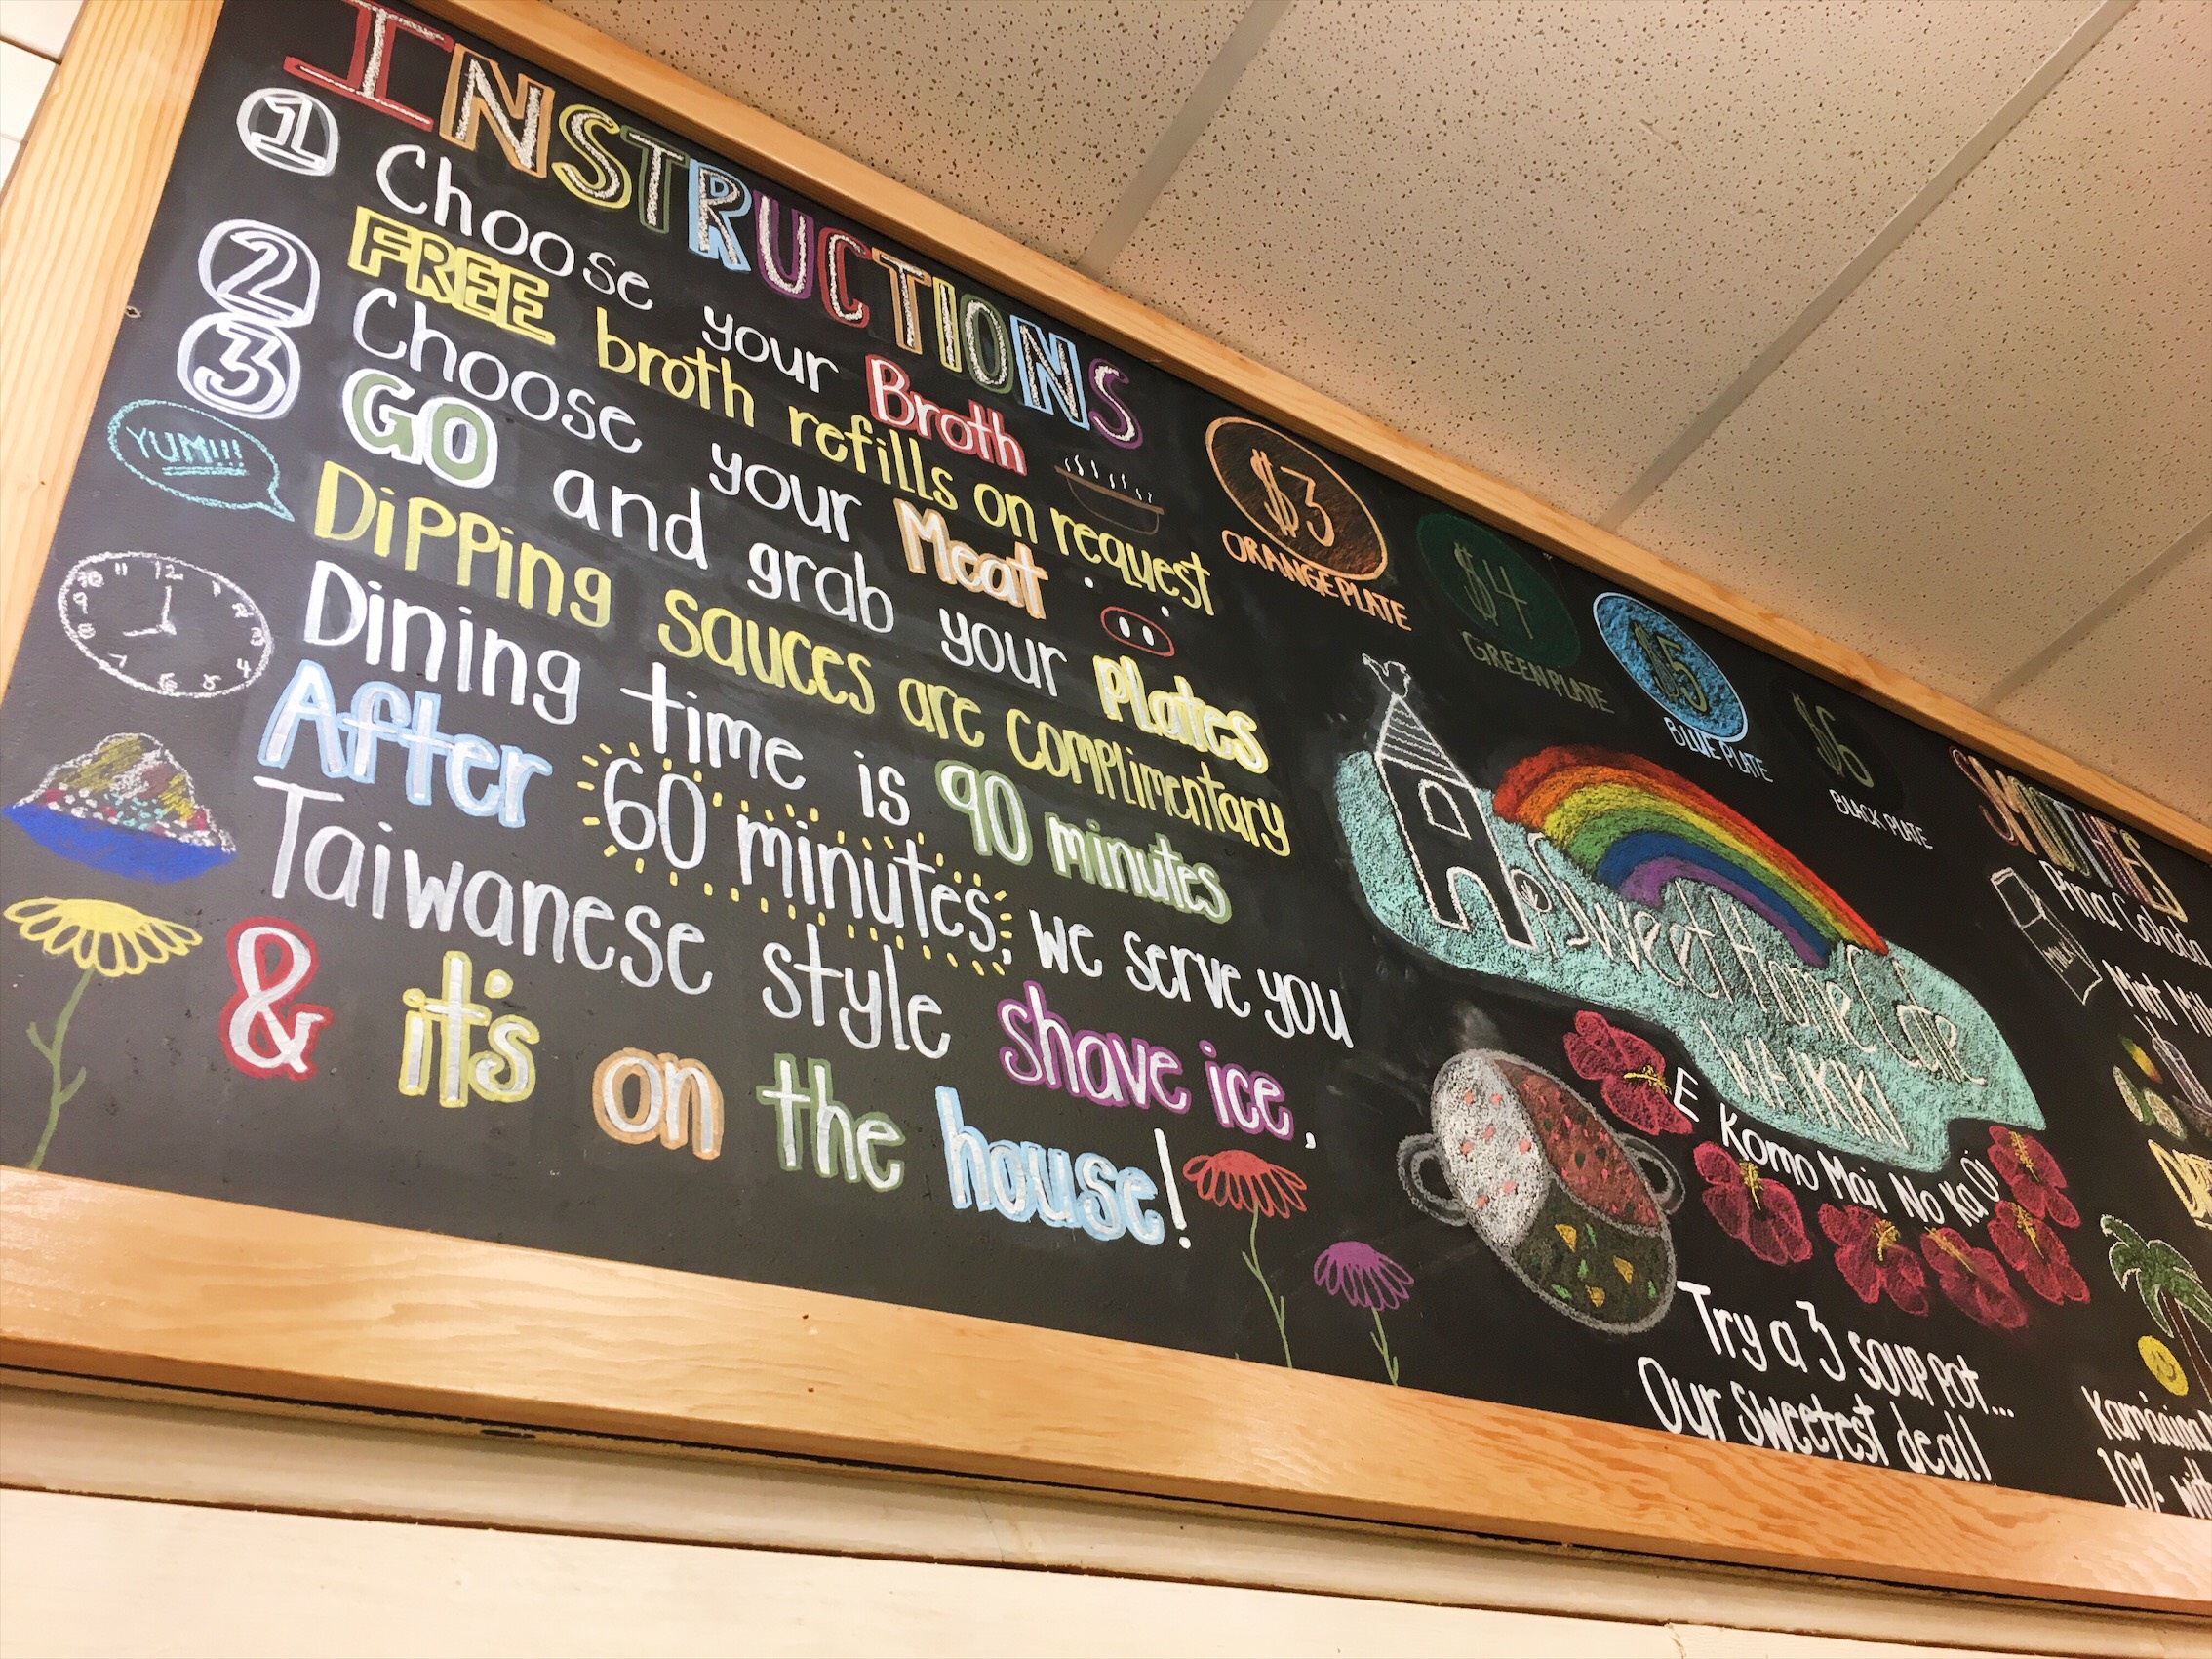 INSTRUCTIONS
1 Choose your Broth
FREE broth refills on request
2 Choose your Meat
3 GO and grab your Plates
YUM!!!
Dipping sauces are complimentary
Dining time is 90 minutes
After 60 minutes, we serve you
Taiwanese style shave ice,
& it's on the house!
12
1
2
3
4
5
6
7
8
9
10
11
$3
ORANGE PLATE
$4
GREEN PLATE
$5
BLUE PLATE
$6
BLACK PLATE
Ho, Sweet Home Café
WAIKIKI
E Komo Mai No Ka Oi
Try a 3 soup pot...
Our sweetest deal!
SMOOTHIES
Pina Colada
Mint
Kama'aina
10%